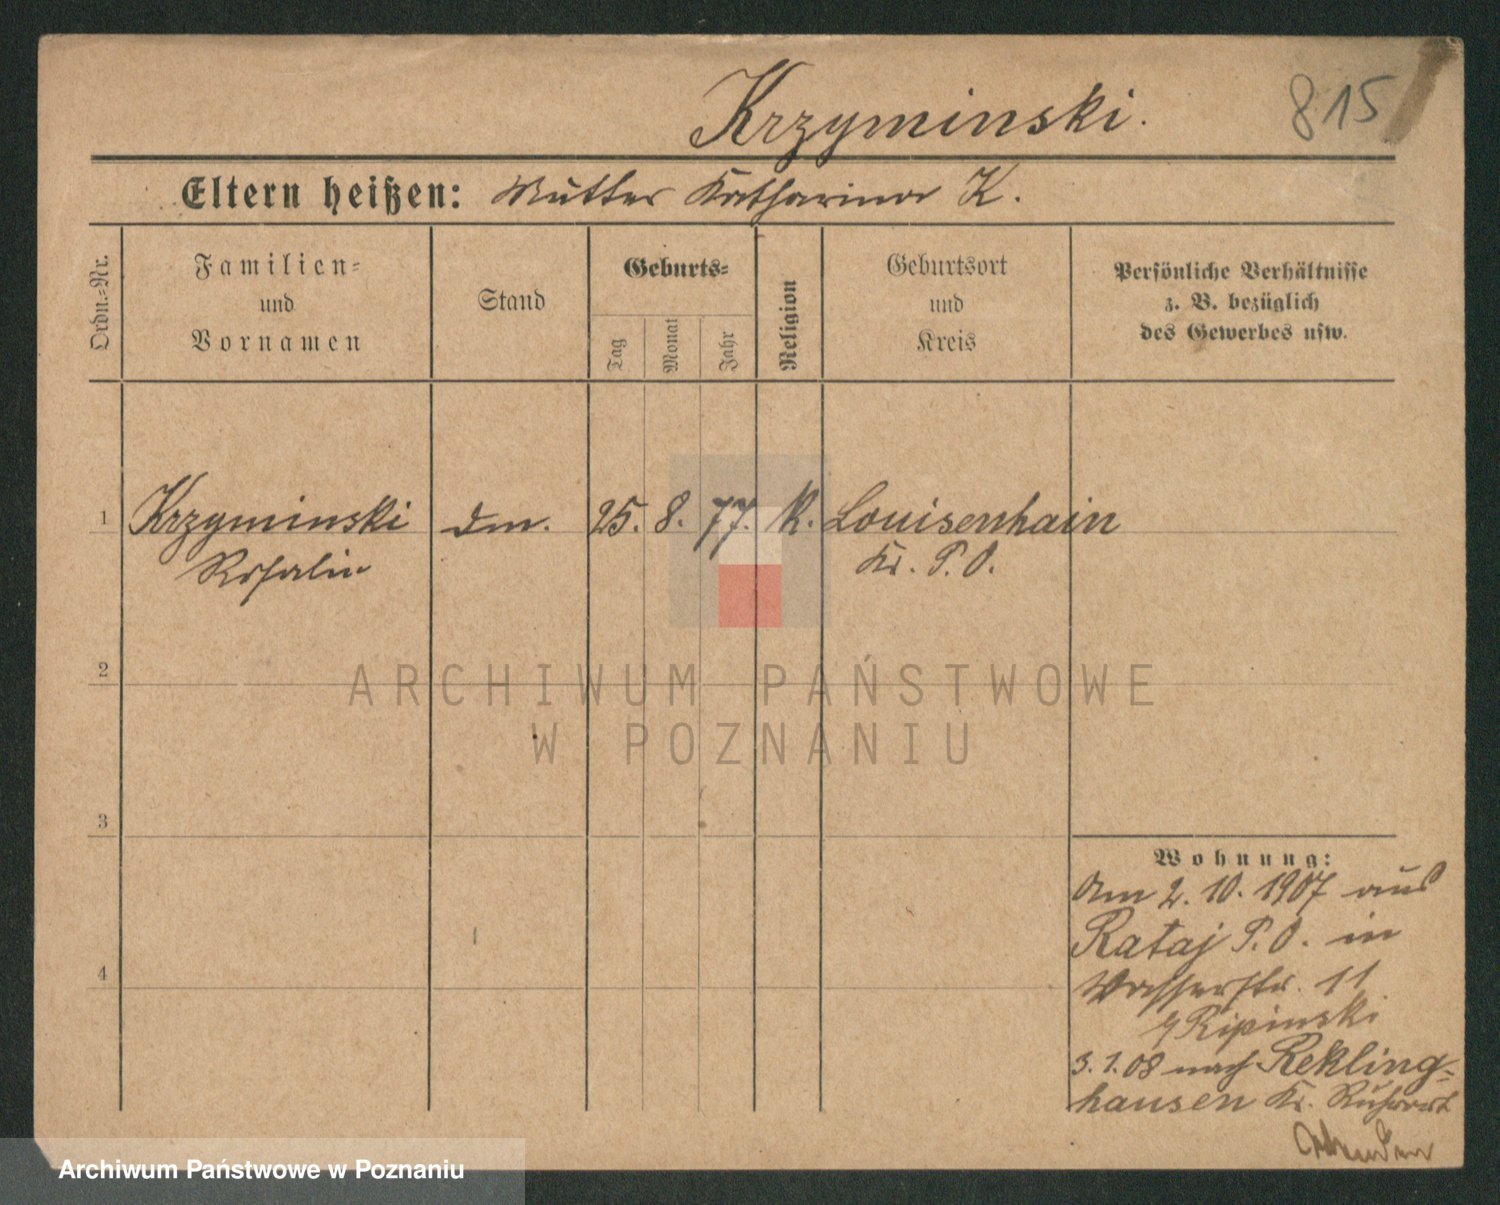 Krzyminski.
815
Eltern heißen: Mutter Katharina K.
Ordn.-Nr.
Familien-
und
Vornamen
Stand
Geburts-
Tag
Monat
Jahr
Religion
Geburtsort
und
Kreis
Persönliche Verhältnisse
z. B. bezüglich
des Gewerbes usw.
1 Krzyminski 25. 8. 77. K. Louisenhain
Rosalie Kr. P. O.
2
ARCHIWUM PAŃSTWOWE
W POZNANIU
3
Wohnung:
Am 2. 10. 1907 aus
Rataj P. O. in
4
Wasserstr. 11
Ripinski
3. 1. 08 nach Rekling-
hausen Kr. Ruhrort
Archiwum Państwowe w Poznaniu